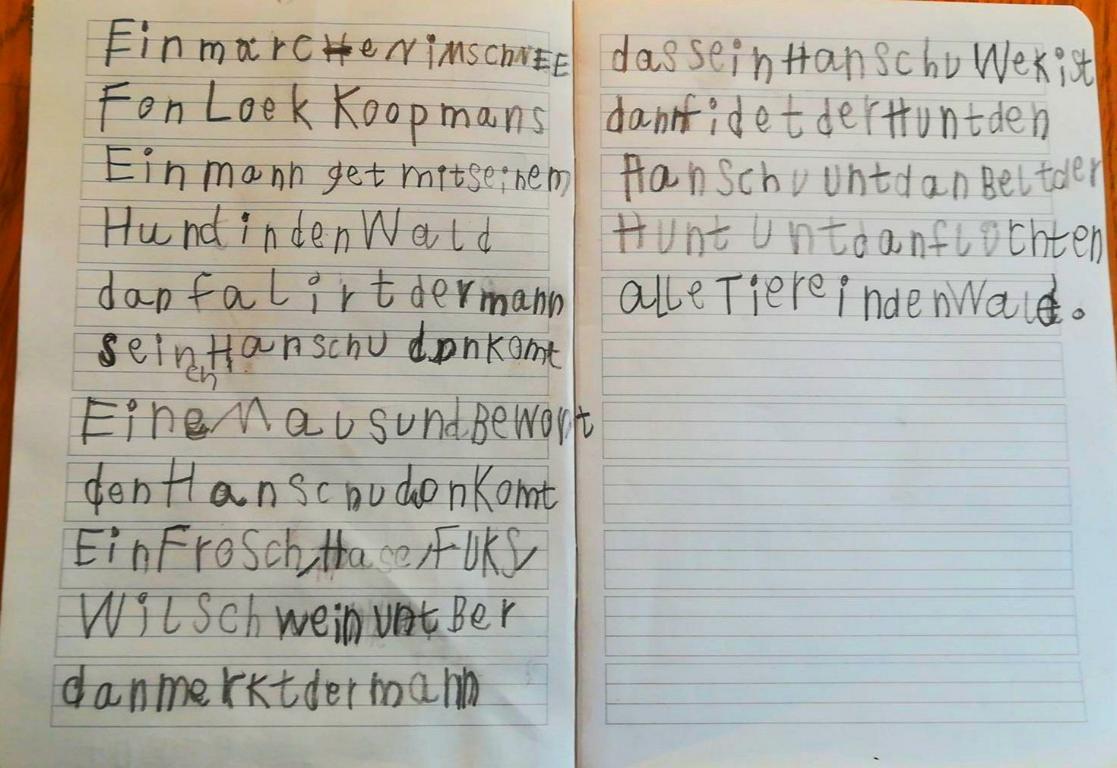 Ein marcHen im schNEE
Fon Loek Koopmans
Ein mann get mit seinem
Hund in den Wald
dan faLirt der mann
sein Hanschu dan komt
en
Eine Maus und BeWont
den Hanschu dan Komt
Ein FroSch, Hase, FUKS,
WiLSchwein unt Ber
dan merkt der mann
das sein HanSchu Wek ist
dann fidet der Hunt den
HanSchu unt dan BeLt der
Hunt unt dan fLüchten
aLLe Tiere in den Wald.